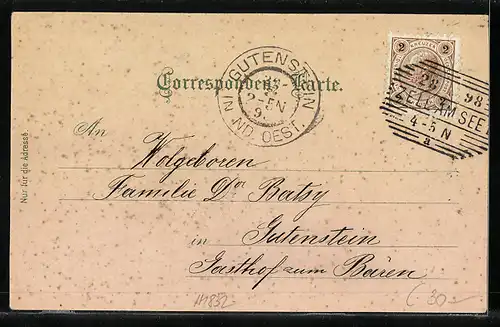 2 KREUZER 2
GUTENSTEIN
2-5N
ND. OEST.
Correspondenz-Karte.
23 98
ZELL AM SEE
4-5 N
a
An
Wolgeboren
Familie Dr Batsy
in Gutenstein
Gasthof zum Bären
Nur für die Adresse.
H1832
30-